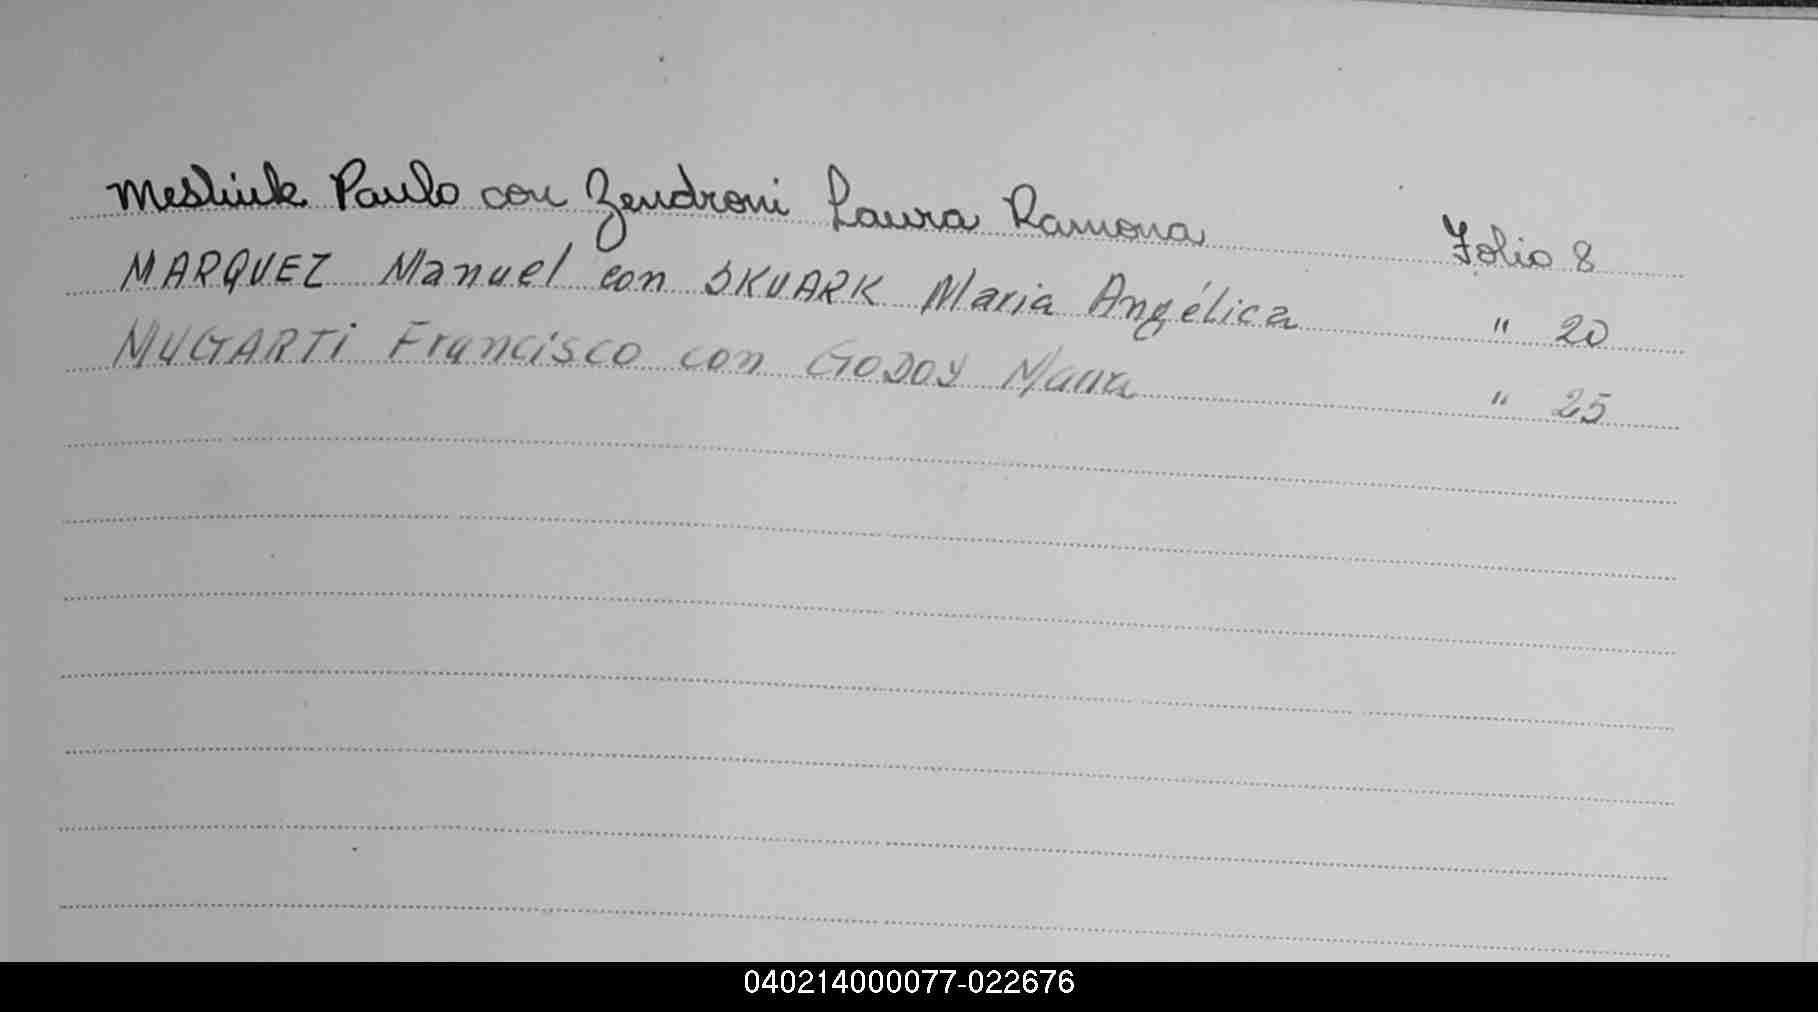 Mesliuk Paulo con Zendroni Laura Ramona Folio 8
MARQUEZ Manuel con SKUARK Maria Angélica " 20
MUGARTi Francisco con GODOY Maria " 25
040214000077-022676